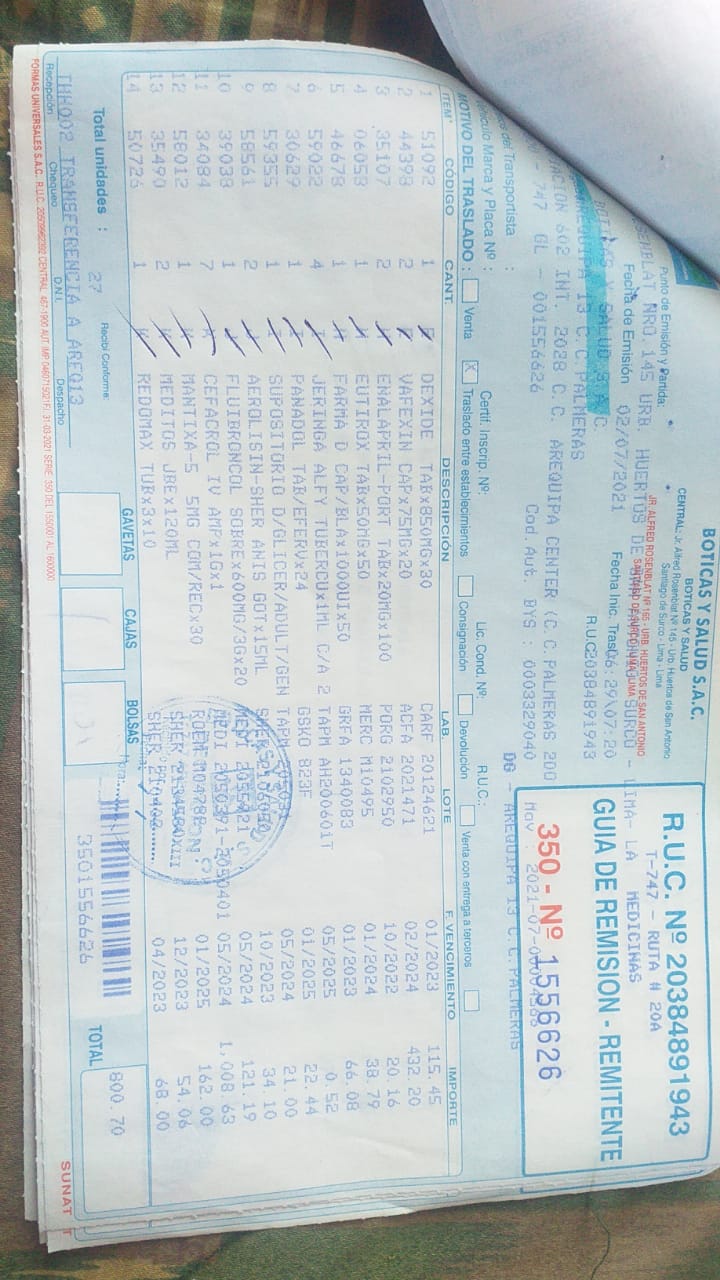 BOTICAS Y SALUD S.A.C.
BOTICAS Y SALUD
CENTRAL: Jr. Alfred Rosenblat Nº 145 - Urb. Huertos de San Antonio
Santiago de Surco - Lima - Lima
JR. ALFRED ROSENBLAT Nº 165 - URB. HUERTOS DE SAN ANTONIO
SANTIAGO DE SURCO - LIMA - LIMA
R.U.C. Nº 20384891943
T-747 - RUTA # 20A
MEDICINAS
GUIA DE REMISION - REMITENTE
350 - Nº 1556626
Punto de Emisión y Partida:
NRO. 145 URB. HUERTOS DE SURCO - LIMA- LA
Fecha de Emisión 02/07/2021 Fecha Inic. Tras 06:29\07:20
SALUD S.A.C. R.U.C 20384891943
AREQUIPA 13 C.C.PALMERAS
602 INT. 2028 C.C. AREQUIPA CENTER (C.C.PALMERAS 200 DG - AREQUIPA 13 C.C.PALMERAS
747 GL - 001556626 Cod. Aut. BYS : 0003329040
Transportista :
Marca y Placa Nº : Certif. Inscrip. Nº: Lic. Cond. Nº: R.U.C.:
MOTIVO DEL TRASLADO : Venta X Traslado entre establecimientos Consignación Devolución Venta con entrega a terceros
ITEM CÓDIGO CANT. DESCRIPCIÓN LAB. LOTE F. VENCIMIENTO IMPORTE
1 51092 1 DEXIDE TABx850MGx30 CARF 20124621 01/2023 115.45
2 44398 2 VAFEXIN CAPx75MGx20 ACFA 2021471 02/2024 432.20
3 35107 2 ENALAPRIL-PORT TABx20MGx100 PORG 2102950 10/2022 20.16
4 06058 1 EUTIROX TABx50MGx50 MERC M10495 01/2024 38.79
5 46678 1 FARMA D CAP/BLAx1000UIx50 GRFA 1340083 01/2023 66.08
6 59022 4 JERINGA ALFY TUBERCUx1ML C/A 2 TAPM AH200601T 05/2025 0.52
7 30629 1 PANADOL TAB/EFERVx24 GSKO 823F 01/2025 22.44
8 59355 1 SUPOSITORIO D/GLICER/ADULT/GEN TAPM 05/2024 21.00
9 58561 2 AEROLISIN-SHER ANIS GOTx15ML 10/2023 34.10
10 39038 1 FLUIBRONCOL SOBREx600MG/3Gx20 MEDI 05/2024 121.19
11 34084 7 CEFACROL IV AMPx1Gx1 MEDI 2050371-2050401 05/2024 1,008.63
12 58012 1 MANTIXA-5 5MG COM/RECx30 01/2025 162.00
13 35490 2 MEDITOS JBEx120ML SHER 12/2023 54.06
14 50726 1 REDOMAX TUBx3x10 SHER 04/2023 68.00
Total unidades : 27 Recibí Conforme:
GAVETAS CAJAS BOLSAS
3501556626
TOTAL 800.70
THH002 TRANSFERENCIA A AREQ13
Recepción Chequeo D.N.I. Despacho
FORMAS UNIVERSALES S.A.C.
SUNAT